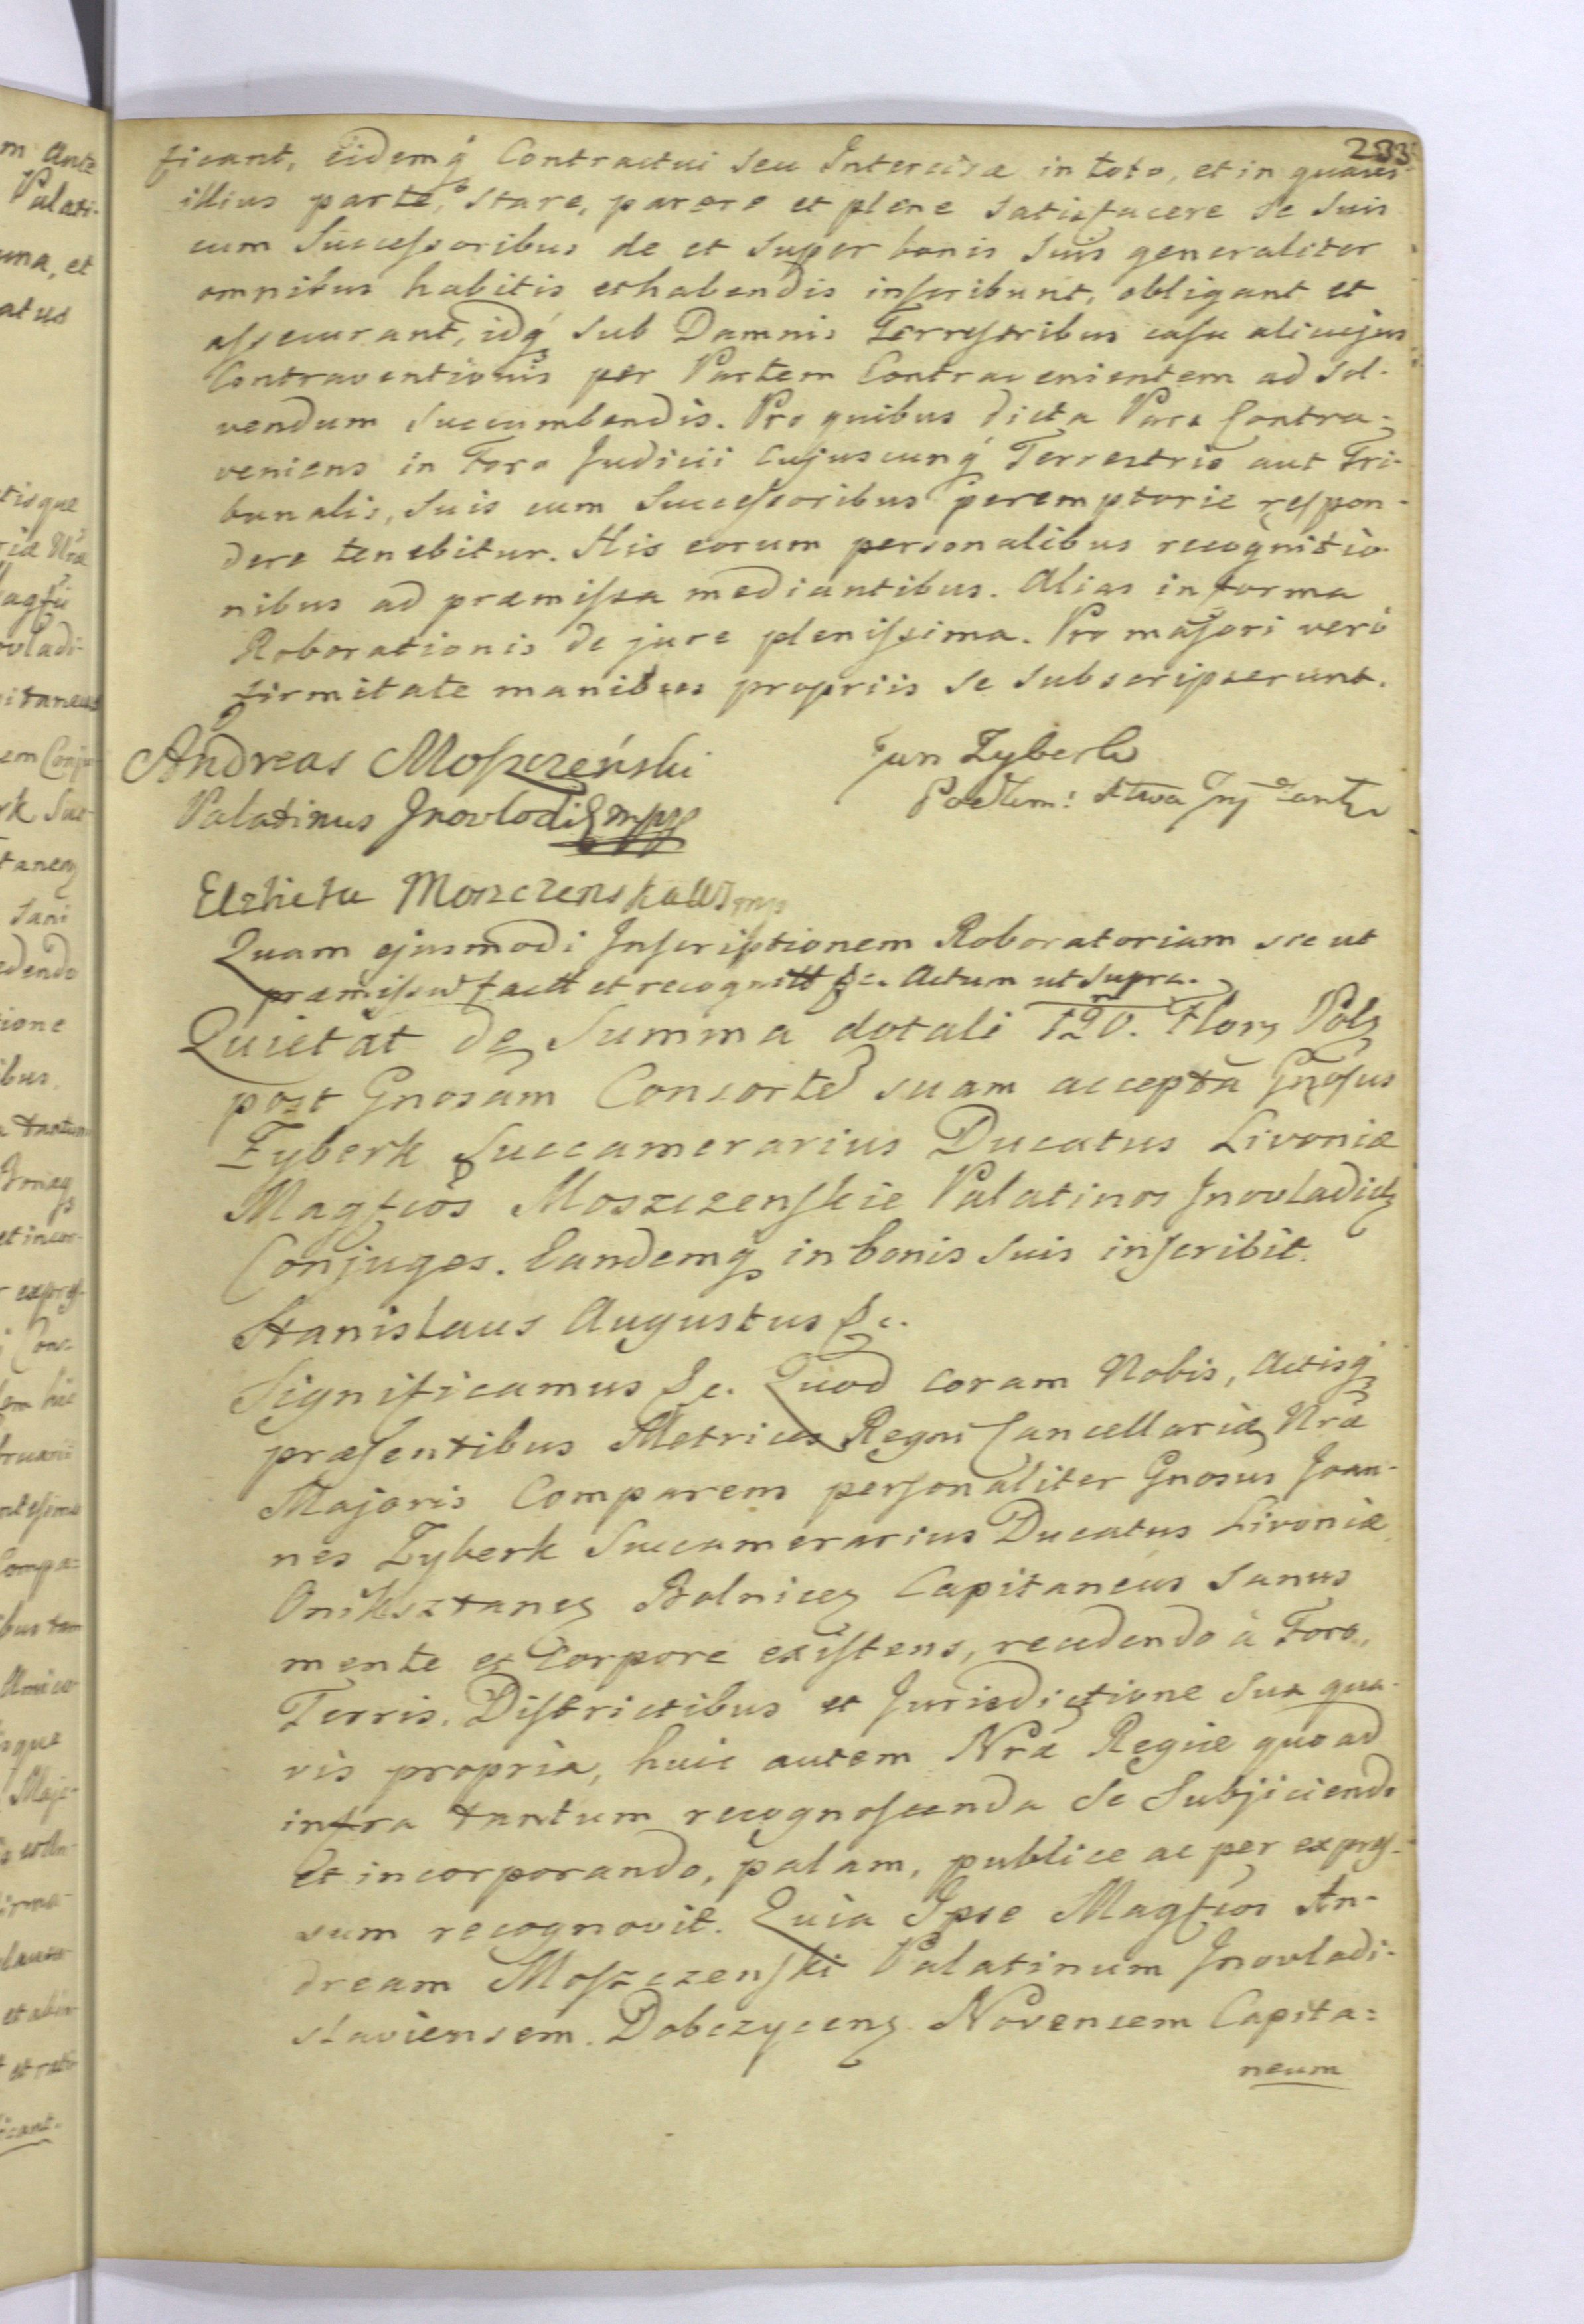 233
ficant, eidemq́ Contractui seu Intercisæ in toto, et in quavis
illius parte, stare, parere et plene satisfacere se suis
cum Successoribus de et super bonis suis generaliter
omnibus habitis et habendis inscribunt, obligant et
assecurant, idq́ sub Damnis Terrestribus casu alicujus
Contraventionis per Partem Contravenientem ad sol-
vendum succumbendis. Pro quibus dicta Pars Contra-
veniens in Foro Judicii cujuscunq́ Terrestris aut Tri-
bunalis, suis cum Successoribus peremptorie respon-
dere tenebitur. His eorum personalibus recognitio-
nibus ad præmissa mediantibus. Alias in forma
Roborationis de jure plenissima. Pro majori verò
firmitate manibus propriis se subscripserunt.
Andreas Moszczeński
Jan Zyberk
Palatinus Inovlodi mpp
Elzbieta Moszczenska W I mp
Quam ejusmodi Inscriptionem Roboratoriam sic ut
præmissũ factt et recognitt &c. Actum ut supra.
Quietat de Summa dotali 120. m Flor. Pol.
post Gnosam Consorte suam acceptã Gnosus
Zyberk Succamerarius Ducatus Livoniæ
Magfcos Moszczenskie Palatinos Inovladicz
Conjuges. Eandemq́ in bonis suis inscribit.
Stanislaus Augustus &c.
Significamus &c. Quod coram Nobis, Actisq́
præsentibus Metrices Regni Cancellariæ Nræ
Majoris Comparens personaliter Gnosus Joan-
nes Zyberk Succamerarius Ducatus Livoniæ
Oniksztanes Bolnices Capitaneus sanus
mente et Corpore existens, recedendo à Foro,
Terris, Districtibus et Jurisdictione sua qua-
vis propria, huic autem Nræ Regiæ quo ad
infra tantum recognoscenda se Subjiciendo
et incorporando, palam, publice ac per expres-
sum recognovit. Quia Ipse Magfcos An-
dream Moszczenski Palatinum Inovladi-
slaviensem. Dobczycens. Novensem Capita-
neum